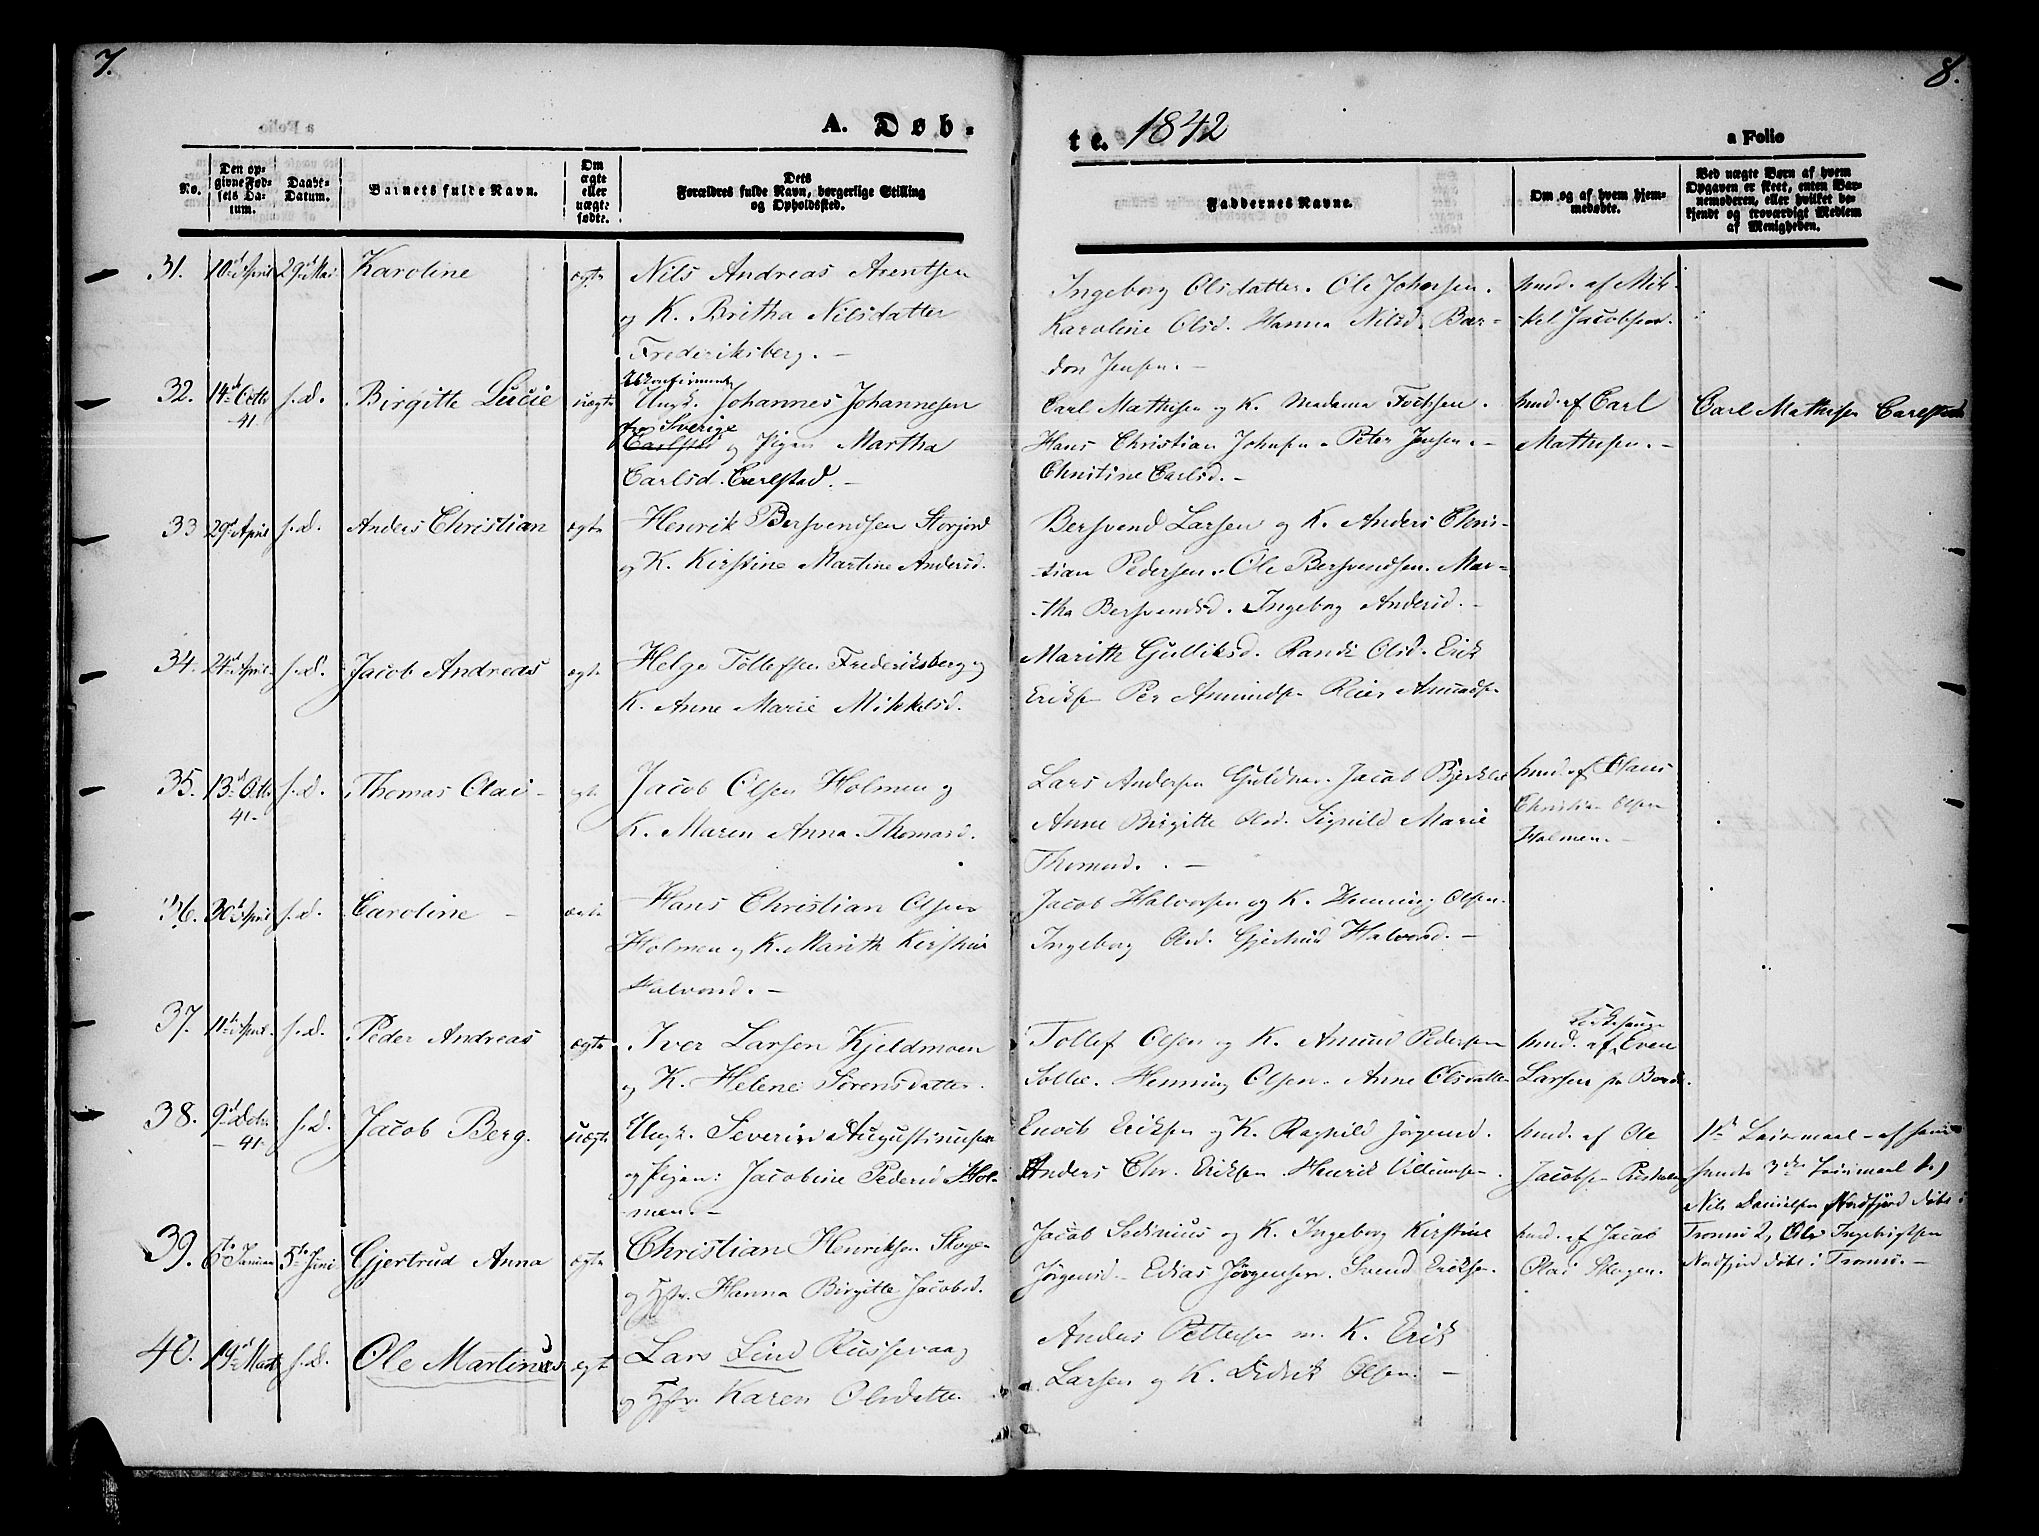 7.
8.
A. Døb-
te. 1842
a Folio
No.
Den op-
givne Fød-
sels Da-
tum.
Daabs-
Datum.
Barnets fulde Navn.
Om
ægte
eller
uægte
fødte.
Dets
Forældres fulde Navn, borgerlige Stilling
og Opholdssted.
Faddernes Navne.
Om og af hvem hjem-
medøbte.
Ved uægte Børn af hvem
Opgaven er skeet, enten Bar-
nemoderen, eller hvilket be-
kjendt og troværdigt Medlem
af Menigheden.
31. 10d April 29d Mai Karoline ægte Nils Andreas Arentsen
og K. Britha Nilsdatter
Frederiksberg. -
Ingeborg Olsdatter. Ole Johnsen.
Karoline Olsd. Hanna Nilsd. Bar-
don Jensen. -
hmd. af Mik-
kel Jacobsen.
32. 14d Octbr 41. s. d. Birgitte Lucie uægte Ungk. Johannes Johannesen
fra Sverige
og Pigen Martha
Carlsd. Carlstad. -
Carl Mathisen og K. Madame Fochsen.
Hans Christian Johnsen. Peter Jensen. -
Christine Carlsd. -
hmd. af Carl
Mathisen. -
Carl Mathisen Carlstad
33 29d April s. d. Anders Christian ægte Henrik Bersvendsen Storjord
og K. Kirstine Martine Andersd.
Bersvend Larsen og K. Anders Chris-
tian Pedersen. Ole Bersvendsen. Mar-
tha Bersvendsd. Ingeborg Andersd. -
34. 24d April s. d. Jacob Andreas ægte Helge Tollefsen Frederiksberg og
K. Anne Marie Mikkelsd.
Marith Gulliksd. Randi Olsd. Erik
Eriksen Per Amundsen Reier Amundsen
35. 13d Octb 41. s. d. Thomas Olai - ægte Jacob Olsen Holmen og
K. Maren Anna Thomasd.
Lars Andersen Guldhav. Jacob Bjerklie
Anne Birgitte Olsd. Signild Marie
Thomasd. -
hmd. af Hans
Christian Olsen
Holmen. -
36. 30d April s. d. Caroline - ægte Hans Christian Olsen
Holmen og K. Marith Kirstine
Halvorsd. -
Jacob Halvorsen og K. Henning Olsen.
Ingeborg Olsd. Gjertrud Halvorsd. -
37. 11d April s. d. Peder Andreas ægte Iver Larsen Kjeldmoen
og K. Helene Sørensdatter.
Tollef Olsen og K. Amund Pedersen
Sollie. Henning Olsen. Anne Olsdatter
hmd. af Even
Larsen
38. 9d Octbr. 41. s. d. Jacob Berg. uægte Ungk. Severin Augustinusen
og Pigen: Jacobine Pedersd Hol-
men. -
Enock Eriksen og K. Ragnild Jørgensd.
Anders Chr. Eriksen Henrik Villumsen.
hmd. af Ole
Jacobsen
1ste Leiermaal - af
3die Leiermaal
Nils Danielsen Nordfjord døbt i
Tromsø 2, Ole Ingebrigtsen
Nordfjord døbt i Tromsø. -
39. 6te Januar 5te Juni Gjertrud Anna ægte Christian Henriksen Skogen
og Hstr. Hanna Birgitte Jacobsd.
Jacob Sedinius og K. Ingeborg Kirstine
Jørgensd - Edias Jørgensen. Svend Eriksen.
hmd. af Jacob
Olai Skogen.
40. 19d Marts s. d. Ole Martinus ægte Lars Lind Russevaag
og Hstr. Karen Olsdatter
Anders Pettersen m. K. Erik
Larsen og K. Didrik Olsen. -